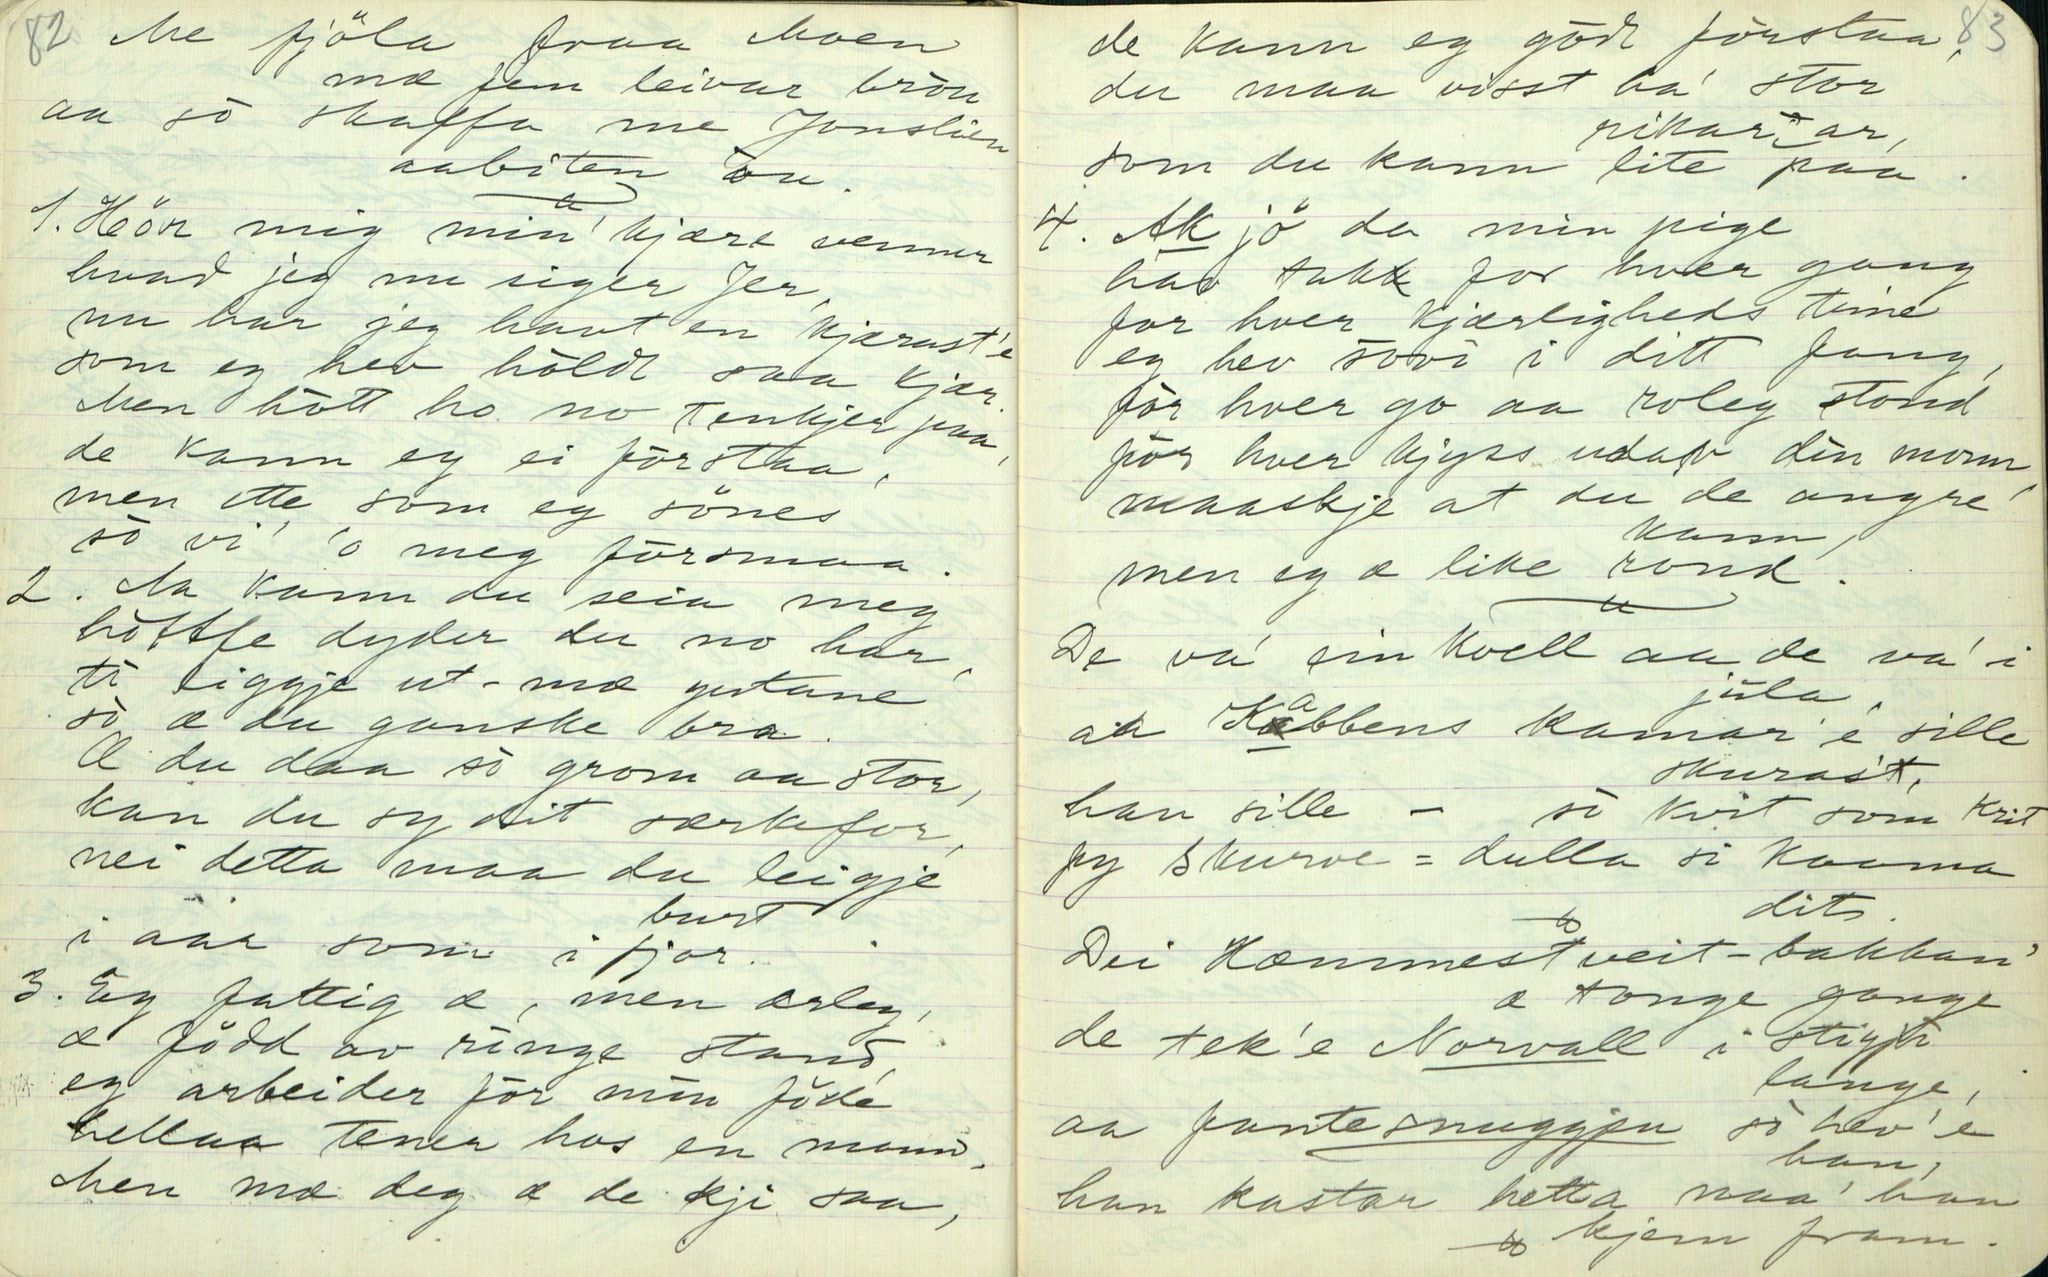 82
Me fjöla fraa Moen
mæ fem leivar brön
aa sò skaffa me Jonslien
aabiten òn.
1. Höör mig min' kjære venner
hvad jeg nu siger Jer,
nu har jeg havt en kjærast'e
som eg hev höldt saa kjær.
Men hòtt ho no tenkjer paa,
de kann eg ei fórstaa,
men ette som eg sönes
sò vi' 'o meg fórsmaa.
2. Na kann du seia meg
hòttfe dyder du no har,
ti liggje ut - mæ gutane
sò æ du ganske bra.
Æ du daa sò grom aa stor,
kan du sy dit særkefor,
nei detta maa du leigje
burt
i aar som i fjor.
3. Eg fattig æ, men ærleg,
æ född av ringe stand,
eg arbeider fór min föde
hellaa tener hos en mann.
Men mæ deg æ de kji saa,
83
de kann eg gódt fórstaa,
du maa visst ha' stor
rikar ar,
som du kann lite paa.
4. Ak jö da min pige
hav takk for hver gang
for hver kjærligheds time
eg hev sovi i ditt fang,
fór hver go aa roleg stond
fór hver kjyss udav din monn
maaskje at du de angre
kann,
men eg æ like rond.
De va' ein kvell aa de va' i
jula,
aa Kabbens kamar'e sille
skurast,
han sille - sò kvit som krit
py skurve = dulla si kaama
dits.
Dei Hæmmestveit-bakkan'
æ tonge gange
de tek'e Norvall i stigji
lange,
aa fantesnuggjen sò hev'e
han,
han kastar hetta naa' han
kjem fram.